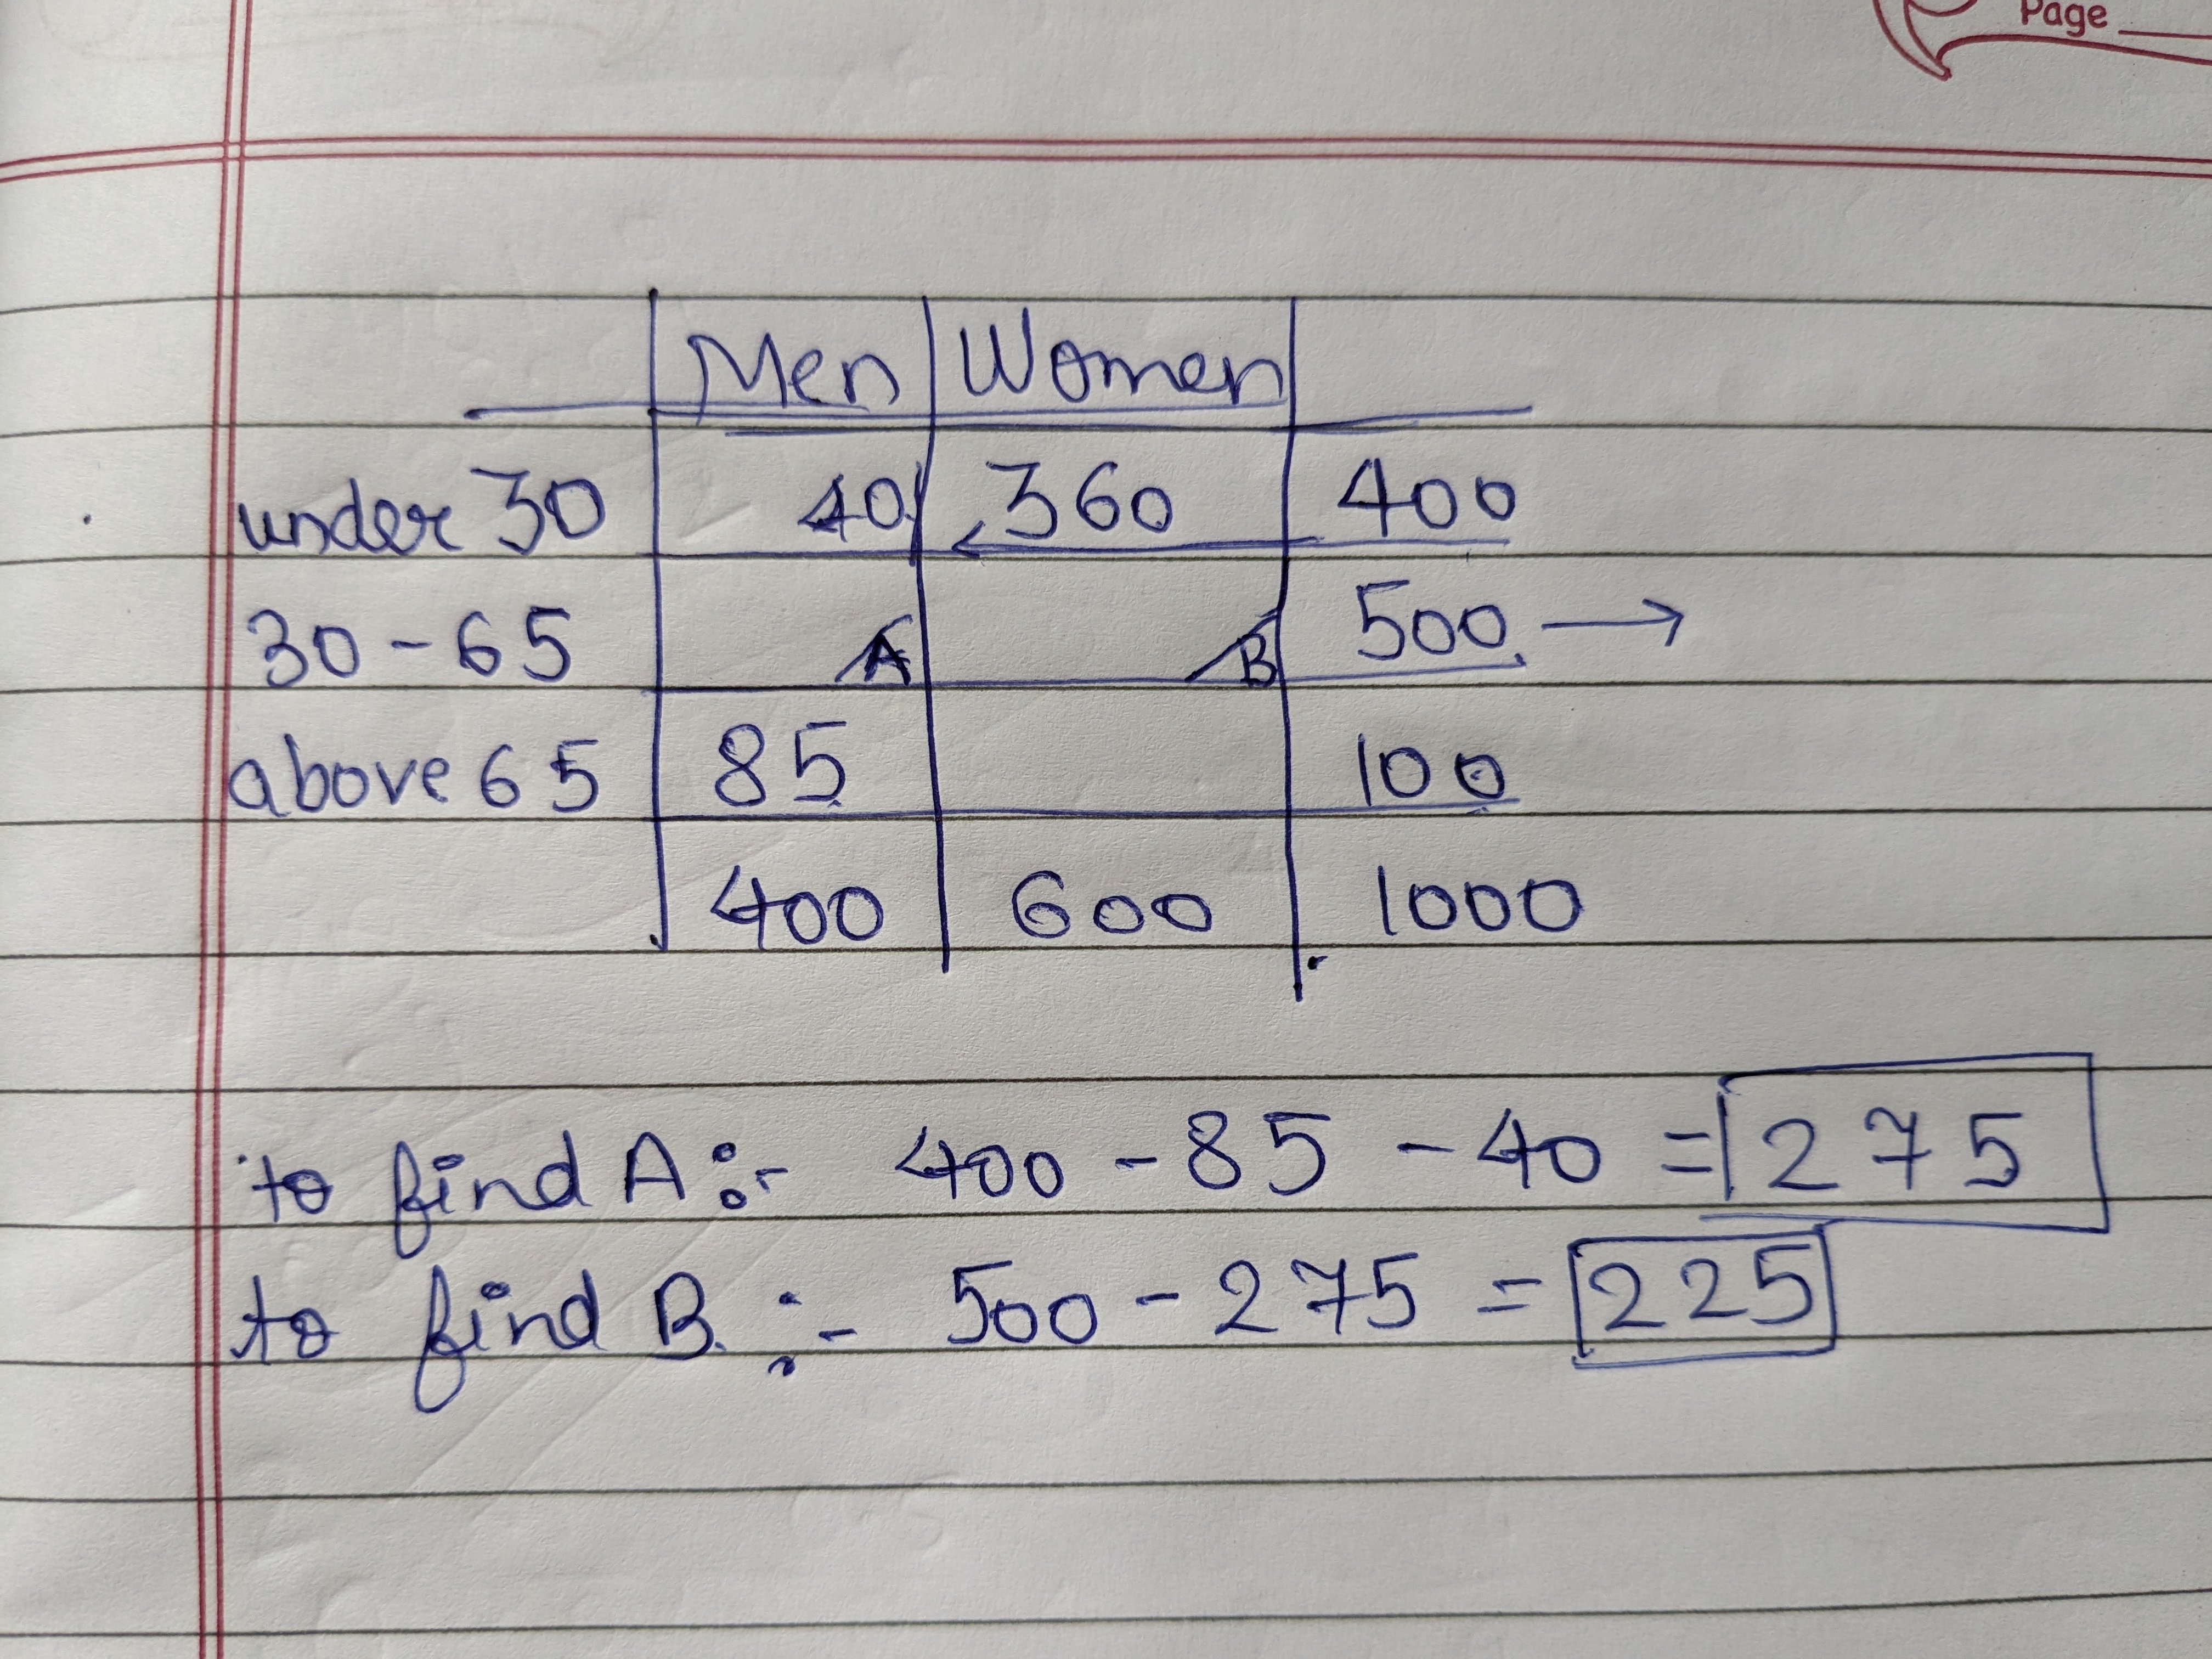 Page
Men Women
under 30 40 360 400
30 - 65 A B 500 →
above 65 85 100
400 600 1000
to find A :- 400 - 85 - 40 = 275
to find B. :- 500 - 275 = 225